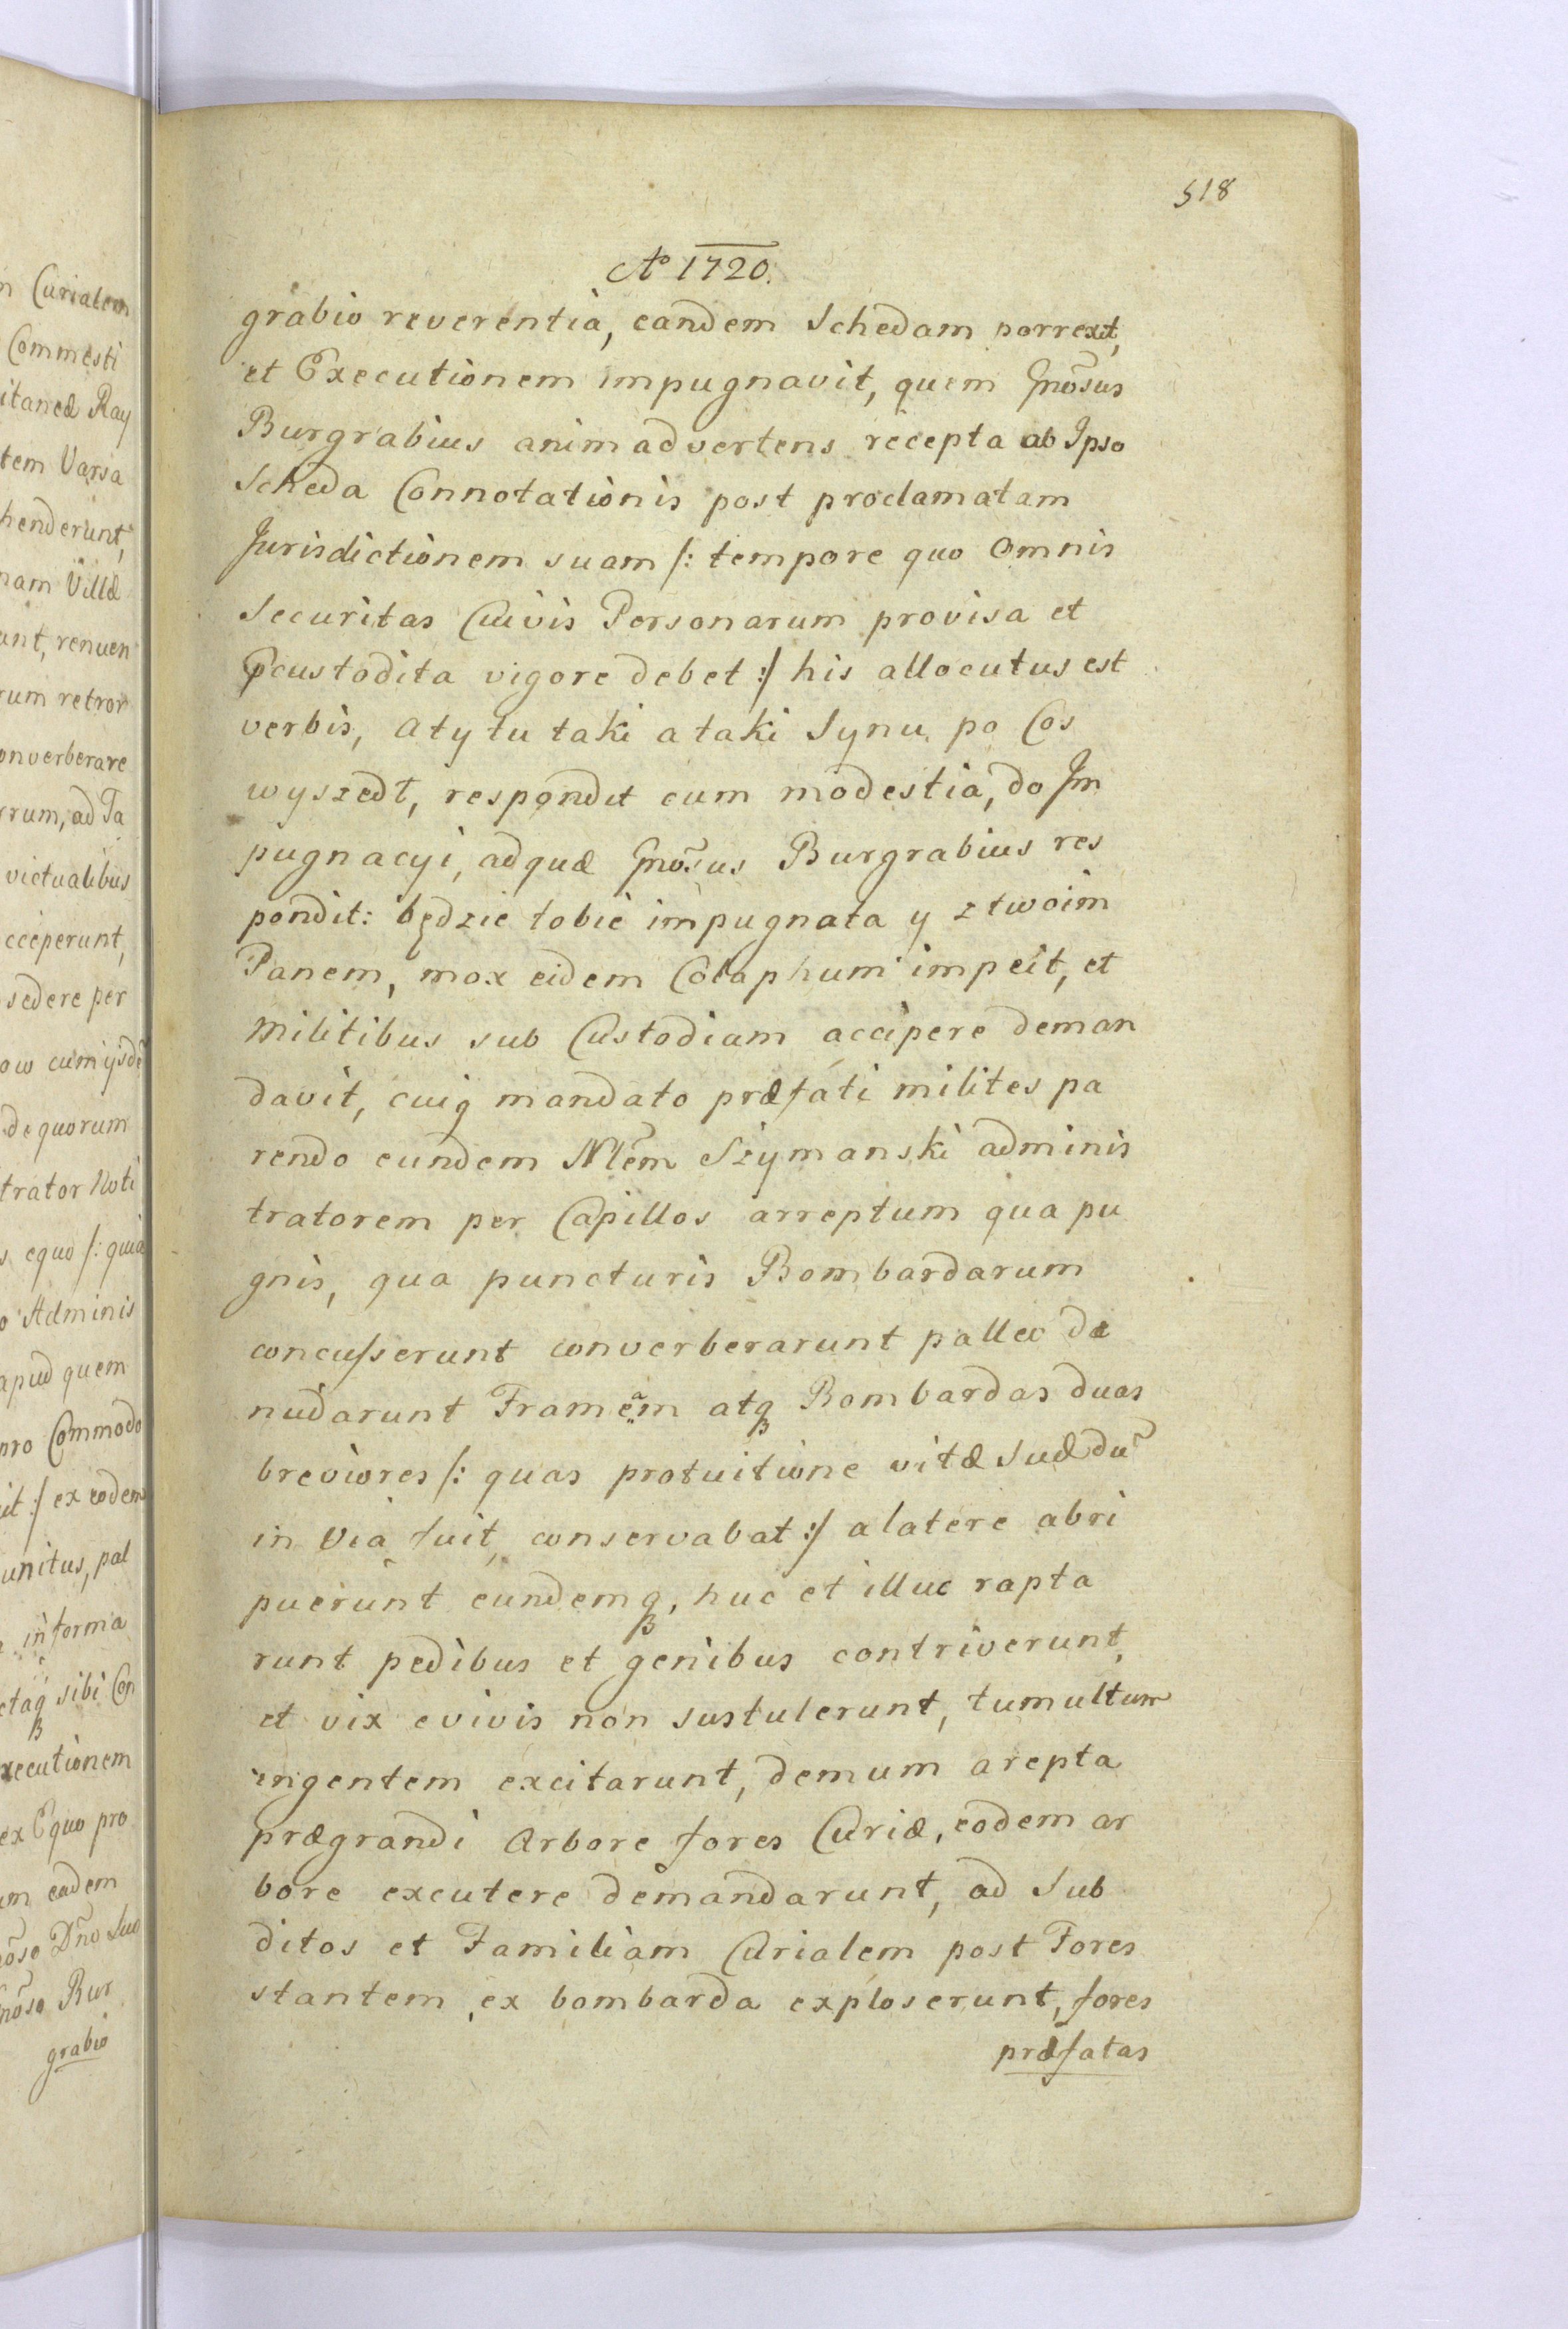 518
Aº 1720.
grabio reverentia, eandem Schedam porrexit,
et Executionem impugnavit, quem Gnõsus
Burgrabius animadvertens recepta ab Ipso
Scheda Connotationis post proclamatam
Jurisdictionem suam /: tempore quo Omnis
Securitas Cuivis Personarum provisa et
Pcustodita vigore debet :/ his allocutus est
verbis, a ty tu taki a taki Synu po Cos
wyszedł, respondit cum modestia, do Im
pugnacyi, ad quæ Gnõsus Burgrabius res
pondit: będzie tobie impugnata y z twoim
Panem, mox eidem Colaphum impeit, et
Militibus sub Custodiam accipere deman
davit, cuiq mandato præfati milites pa
rendo eundem Nlẽm Szymanski adminis
tratorem per Capillos arreptum qua pu
gnis, qua puncturis Bombardarum
concusserunt converberarunt palleo de
nudarunt Framẽm atq Bombardas duas
breviores /: quas protuitione vitæ Suæ dũ
in Via fuit, conservabat :/ a latere abri
puerunt eundemq, huc et illuc rapta
runt pedibus et genibus contriverunt,
et vix e vivis non sustulerunt, tumultum
ingentem excitarunt, demum arepta
prægrandi Arbore fores Curiæ, eodem ar
bore excutere demandarunt, ad Sub
ditos et Familiam Curialem post Fores
stantem, ex bombarda exploserunt, fores
præfatas
n Curialem
Commesti
itaneæ Ray
tem Varsa
henderunt,
nam Villæ
ant, renuen
rum retror
onverberare
rum, ad Ta
victualibus
cceperunt,
sedere per
ow cum ysdẽ
de quorum
trator Noti
s equo /: quia
o Adminis
apud quem
pro Commodo
it :/ ex eodem
unitus, pal
informa
ctaq sibi Con
xecutionem
ex Equo pro
um eadem
nõso Dño Suo
nõso Bur
grabio